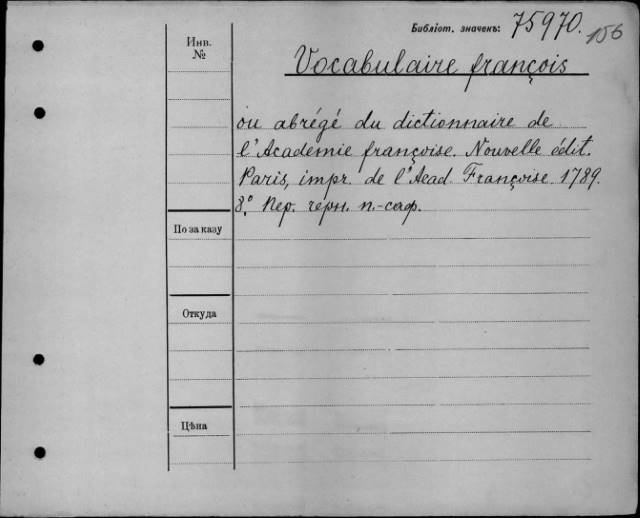 Библіот. значекъ: 75970. 156
Инв. №
Vocabulaire françois
ou abrégé du dictionnaire de
l'Académie françoise. Nouvelle édit.
Paris, impr. de l'Acad. Françoise. 1789.
8.° Пер. черн. п.-саф.
По заказу
Откуда
Цѣна